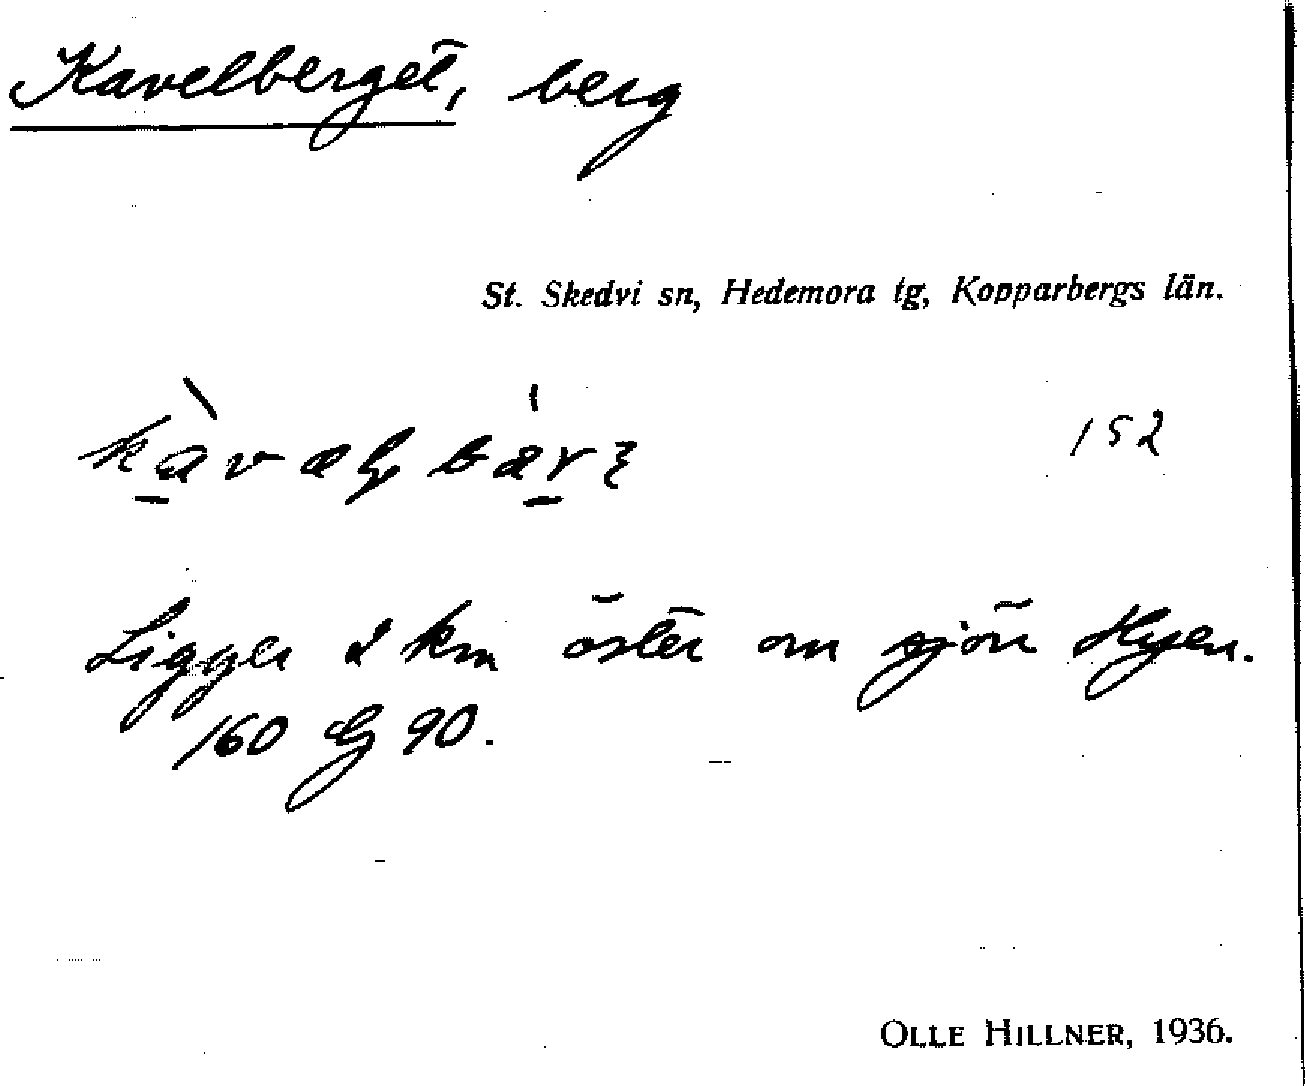 Kavelberget, berg
St. Skedvi sn, Hedemora tg, Kopparbergs län.
152
Ligger 2 km öster om sjön Hyen.
160 Eg 90.
OLLE HILLNER, 1936.